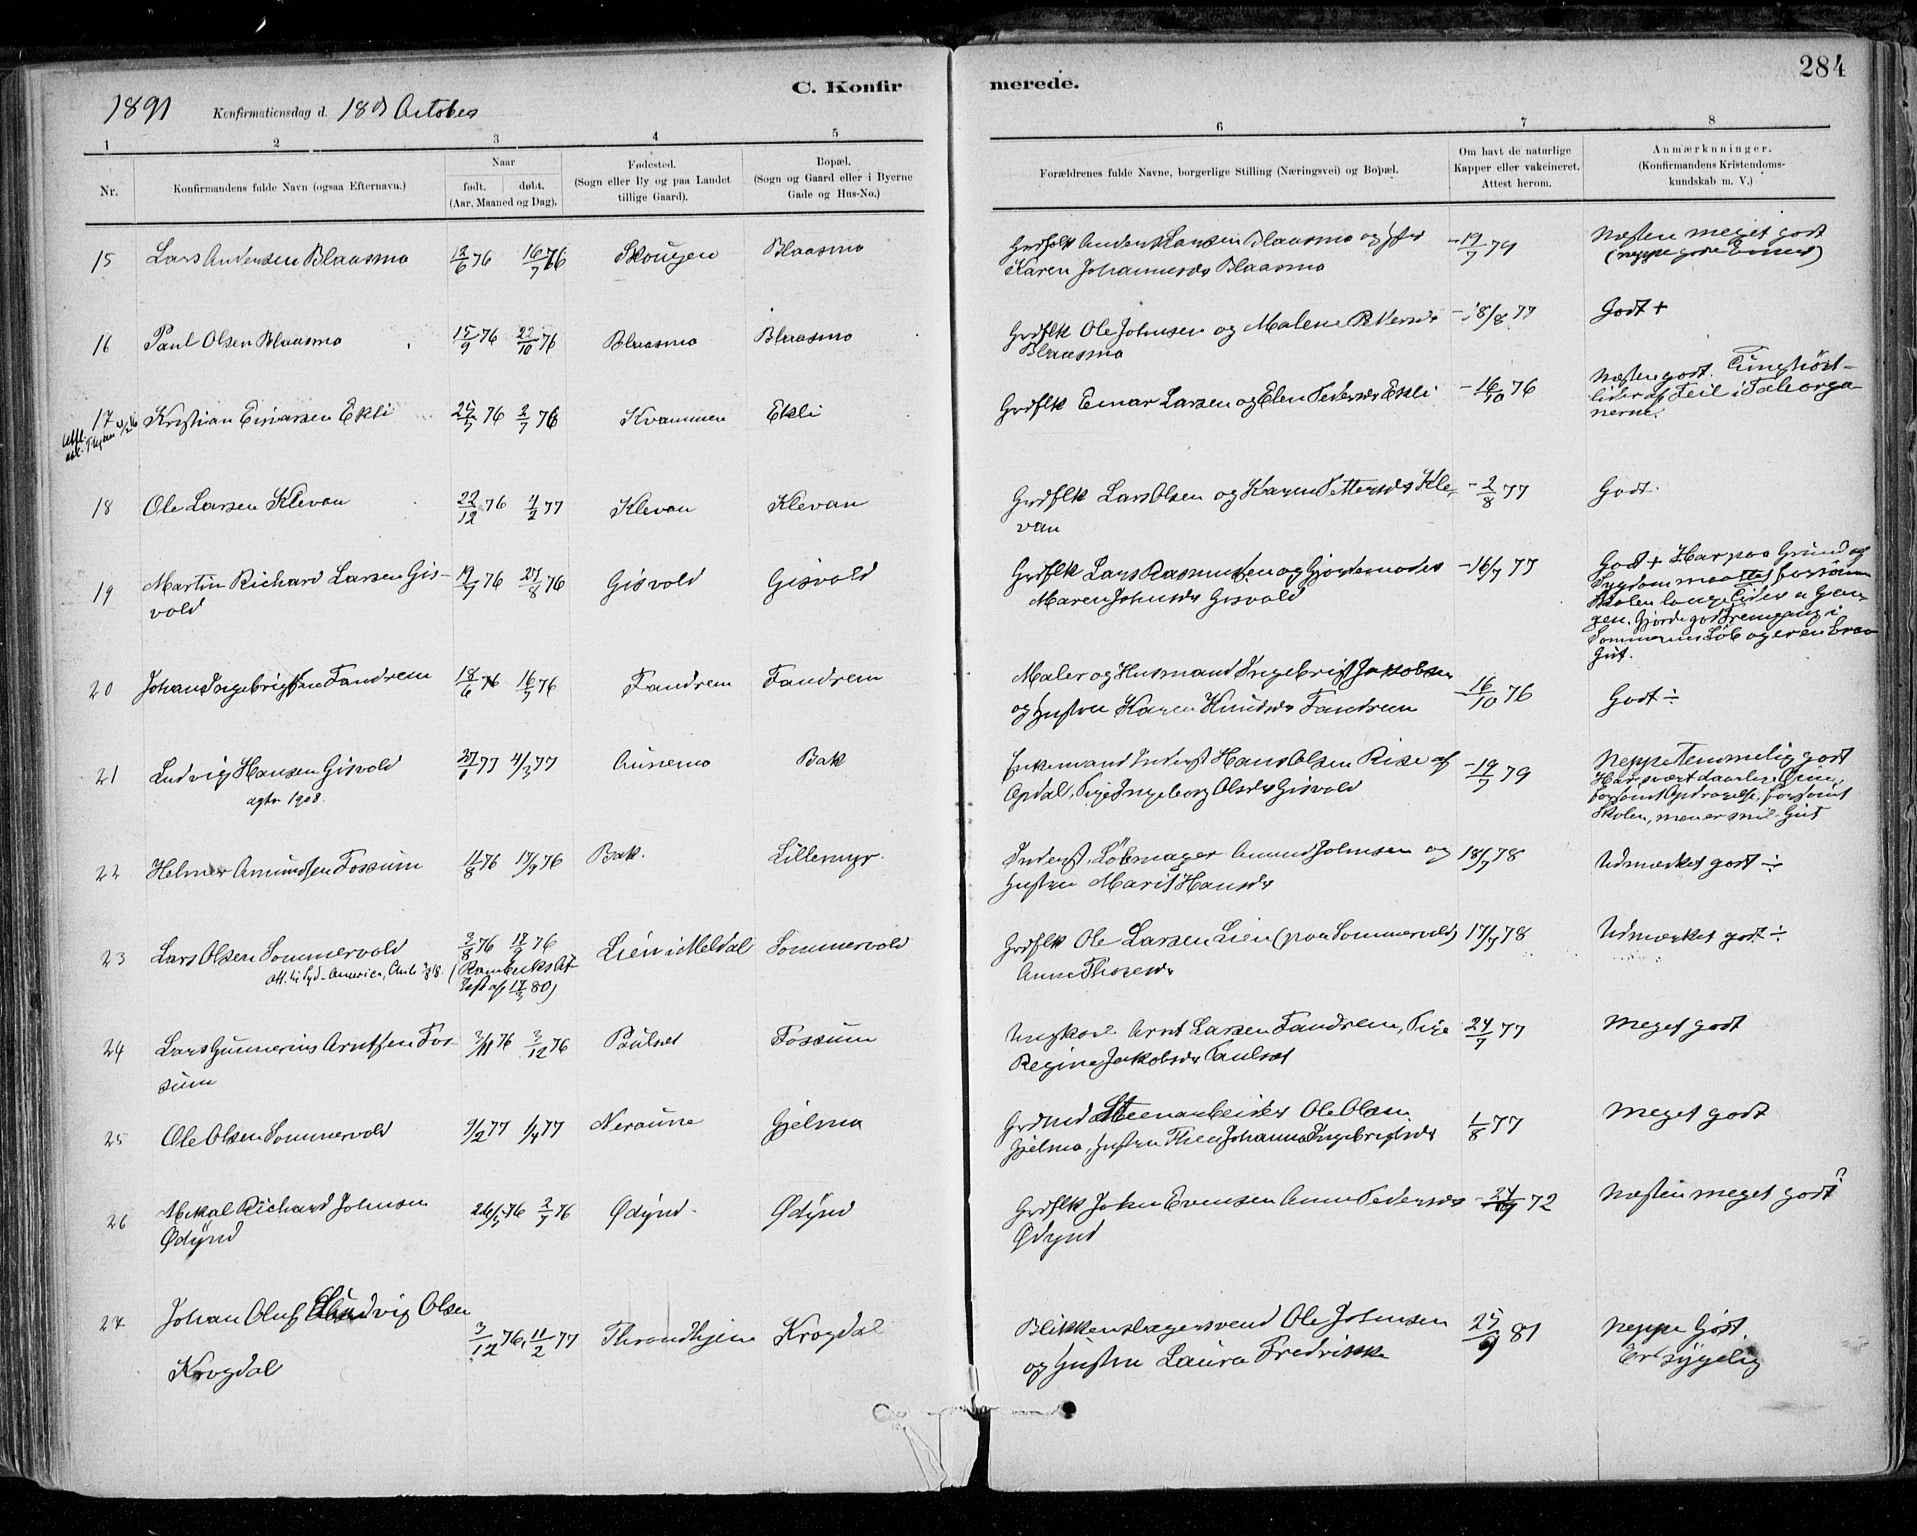 C. Konfirmerede.
284
1891 Konfirmationsdag d. 18de October
1 2 3 4 5 6 7 8
Nr.
Konfirmandens fulde Navn (ogsaa Efternavn.)
Naar
født. døbt.
(Aar, Maaned og Dag).
Fødested.
(Sogn eller By og paa Landet
tillige Gaard).
Bopæl.
(Sogn og Gaard eller i Byerne
Gade og Hus-No.)
Forældrenes fulde Navne, borgerlige Stilling (Næringsvei) og Bopæl.
Om havt de naturlige
Kapper eller vakcineret.
Attest herom.
Anmærkninger.
(Konfirmandens Kristendoms-
kundskab m. V.)
15 Lars Andersen Blaasmo 76 16/7 76 Skougen Blaasmo Grdfolk Anders Larsen Blaasmo og -19/7 79 Næsten meget godt
Karen Johannesdr Blaasmo
16 Paul Olsen Blaasmo 15/9 76 22/10 76 Blaasmo Blaasmo Grdflk Ole Johnsen og Malene Petersdr -18/8 77 Godt +
Blaasmo
17 Kristian Einarsen Ekli 25/5 76 2/7 76 Kvammen Ekli Grdflk Einar Larsen og Elen Pedersdr Ekli -16/10 76 Næsten godt. Tunghørt-
lider af Feil i Taleorga-
nerne.
18 Ole Larsen Klevan 22/12 76 4/2 77 Klevan Klevan Grdflk Lars Olsen og Karen Pettersdr Kle- -2/8 77 Godt.
van
19 Martin Richard Larsen Gis- 19/7 76 27/8 76 Gisvold Gisvold Grdflk Lars Rasmussen og Gjordemoder -16/7 77 Godt + Har paa Grund af
vold Maren Johnsdr Gisvold Sygdom maattet forsømme
Skolen lange Tider a Gan-
gen. Gjorde god Fremgang i
Sommerens Løb og er en brav
Gut.
20 Johan Ingebrigtsen Fandrem 18/6 76 16/7 76 Fandrem Fandrem Maler og Husmand Ingebrigt Jakobsen -16/10 76 Godt ÷
og Hustru Karen Knudsdr Fandrem
21 Ludvig Hansen Gisvold 27/1 77 4/3 77 Aunemo Bak Enkemand Inderst Hans Olsen Rise af -19/7 79 Neppe Temmelig godt
agtr. 1908. Opdal, Pige Ingeborg Olsdr Gisvold Har svært daarlige Evne,
forsømt Opdragelse, forsømt
Skolen, men er snil Gut
22 Helmer Amundsen Fossum 11/8 76 17/9 76 Bak. Lillemyr. Inderst, Løbmager Amund Johnsen og 18/7 78 Udmærket godt ÷
Hustru Marit Hansdr
23 Lars Olsen Sommervold 3/8 76 17/9 76 Lien i Meldal Sommervold Grdflk Ole Larsen Lien (paa Sommervold) 17/7 78 Udmærket godt ÷
80) Anne Thoresdr
24 Lars Gunnerius Arntsen Fos- 3/11 76 3/12 76 Paulset Fossum Ungkarl Arnt Larsen Fandrem, Pige 24/7 77 Meget godt
sum Regine Jakobsdr Paulset
25 Ole Olsen Sommervold 9/2 77 1/4 77 Neraune Gjelmo Grdmd Steenarbeider Ole Olsen 1/8 77 Meget godt
Gjelmo, Hustru Thea Johanna Ingebrigtsdr
26 Mikal Richard Johnsen 26/5 76 2/7 76 Ødynd. Ødynd Grdflk John Evensen Anne Pedersdr 72 Næsten meget godt?
Ødynd Ødynd
27 Johan Oluf Ludvig Olsen 3/12 76, 11/2 77 Throndhjem Krogdal Blikkenslagersvend Ole Johnsen 81 Neppe Godt.
Krogdal og Hustru Laura Fredrikke Er sygelig